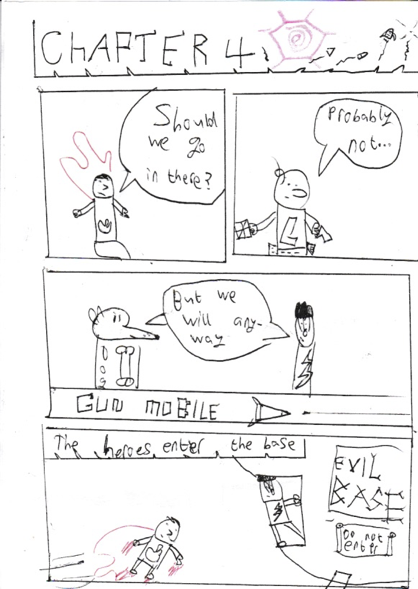 CHAPTER 4
Should
we go
in there?
Probably
not...
But we
will any-
way
GUN MOBILE
The heroes enter the base
EVIL
BASE
Do not
enter